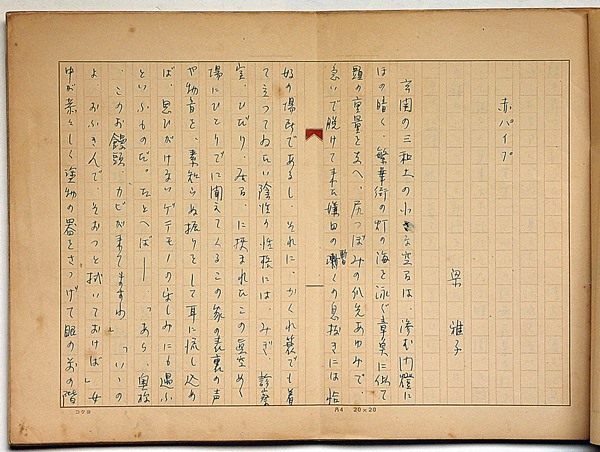 赤パイプ
梁 雅子
玄関の三和土の小さな空間は、滲む門燈に
ほの暗く、繁華街の灯の海を泳ぐ章魚に似て
頭の重量を支へ、尻つぼみの爪先あゆみで、
急いで脱けて来た 暫くの息抜きには恰
好の場所であるし、それに、かくれ簑でも着
て立つてゐたい陰性の性格には、みぎ、診察
室、ひだり、居間、に挟まれたこの真空めく
場にひとりでに聞えてくるこの家の表裏の声
や物音を、素知らぬ振りをして耳に流し込め
ば、思ひがけないゲテモノの楽しみにも遇ふ
といふものだ。たとへば——、「あら、奥様
、このお饅頭、カビが来てますわ」「いゝの
よ、おふきんで、そおつと拭いておけば」女
中が恭々しく塗物の器をさゝげて眼の前の階
コクヨ
20×20